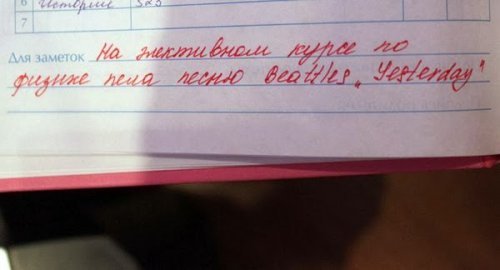 6 Истории 323
7
Для заметок На элективном курсе по
физике пела песню Beattles „Yesterday"